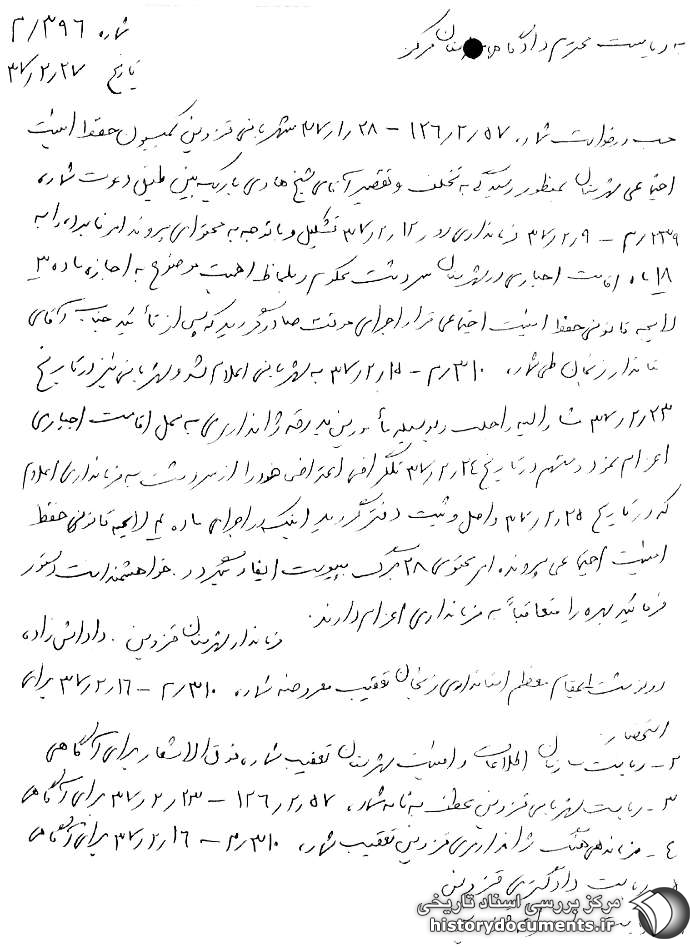 شماره ۲/۳۹۶
به ریاست محترم دادگاه شهرستان مرکز
تاریخ ۳۷/۲/۲۷
حسب درخواست شماره ۱۲۶/۲/۵۷ – ۳۷/۱/۲۸ شهربانی قزوین کمیسیون حفظ امنیت
اجتماعی شهرستان بمنظور رسیدگی به تخلف و تقصیر آقای شیخ هادی باریک بین طبق دعوت شماره
۲/۲۳۹ – ۳۷/۲/۹ فرمانداری روز ۳۷/۲/۱۲ تشکیل و با توجه به محتوای پرونده امر نامبرده را به
۱۸ ماه اقامت اجباری در شهرستان سردشت محکوم و بلحاظ اهمیت موضوع به اجازه ماده ۳
لایحه قانونی حفظ امنیت اجتماعی قرار اجرای موقت صادر گردید که پس از تأیید جناب آقای
استاندار زنجان طی شماره ۲/۳۱۰ – ۳۷/۲/۱۵ به شهربانی اعلام شد و شهربانی نیز در تاریخ
۳۷/۲/۲۳ مشارالیه را جلب و بوسیله مأمورین بدرقه ژاندارمری به محل اقامت اجباری
اعزام نمود و متهم در تاریخ ۳۷/۲/۲۴ تلگرافی اعتراض خود را از سردشت به فرمانداری اعلام
که در تاریخ ۳۷/۲/۲۵ واصل و ثبت دفتر گردید اینک در اجرای ماده ۴ لایحه قانونی حفظ
امنیت اجتماعی پرونده امر محتوی ۲۸ برگ بپیوست ایفاد میگردد. خواهشمند است دستور
فرمائید بهره را متعاقباً به فرمانداری اعزام دارند.
فرماندار شهرستان قزوین. داداش زاده
رونوشت مقام معظم استانداری زنجان تعقیب معروضه شماره ۲/۳۱۰ – ۳۷/۲/۱۶ برای
استحضار
۲– ریاست سازمان اطلاعات و امنیت شهرستان تعقیب شماره فوق الاشعار برای آگاهی
۳– ریاست شهربانی قزوین عطف به نامه شماره ۱۲۶/۲/۵۷ – ۳۷/۲/۲۳ برای آگاهی
۴– فرمانده هنگ ژاندارمری قزوین تعقیب شماره ۲/۳۱۰ – ۳۷/۲/۱۶ برای آگاهی
ریاست دادگستری قزوین
مرکز بررسی اسناد تاریخی
historydocuments.ir